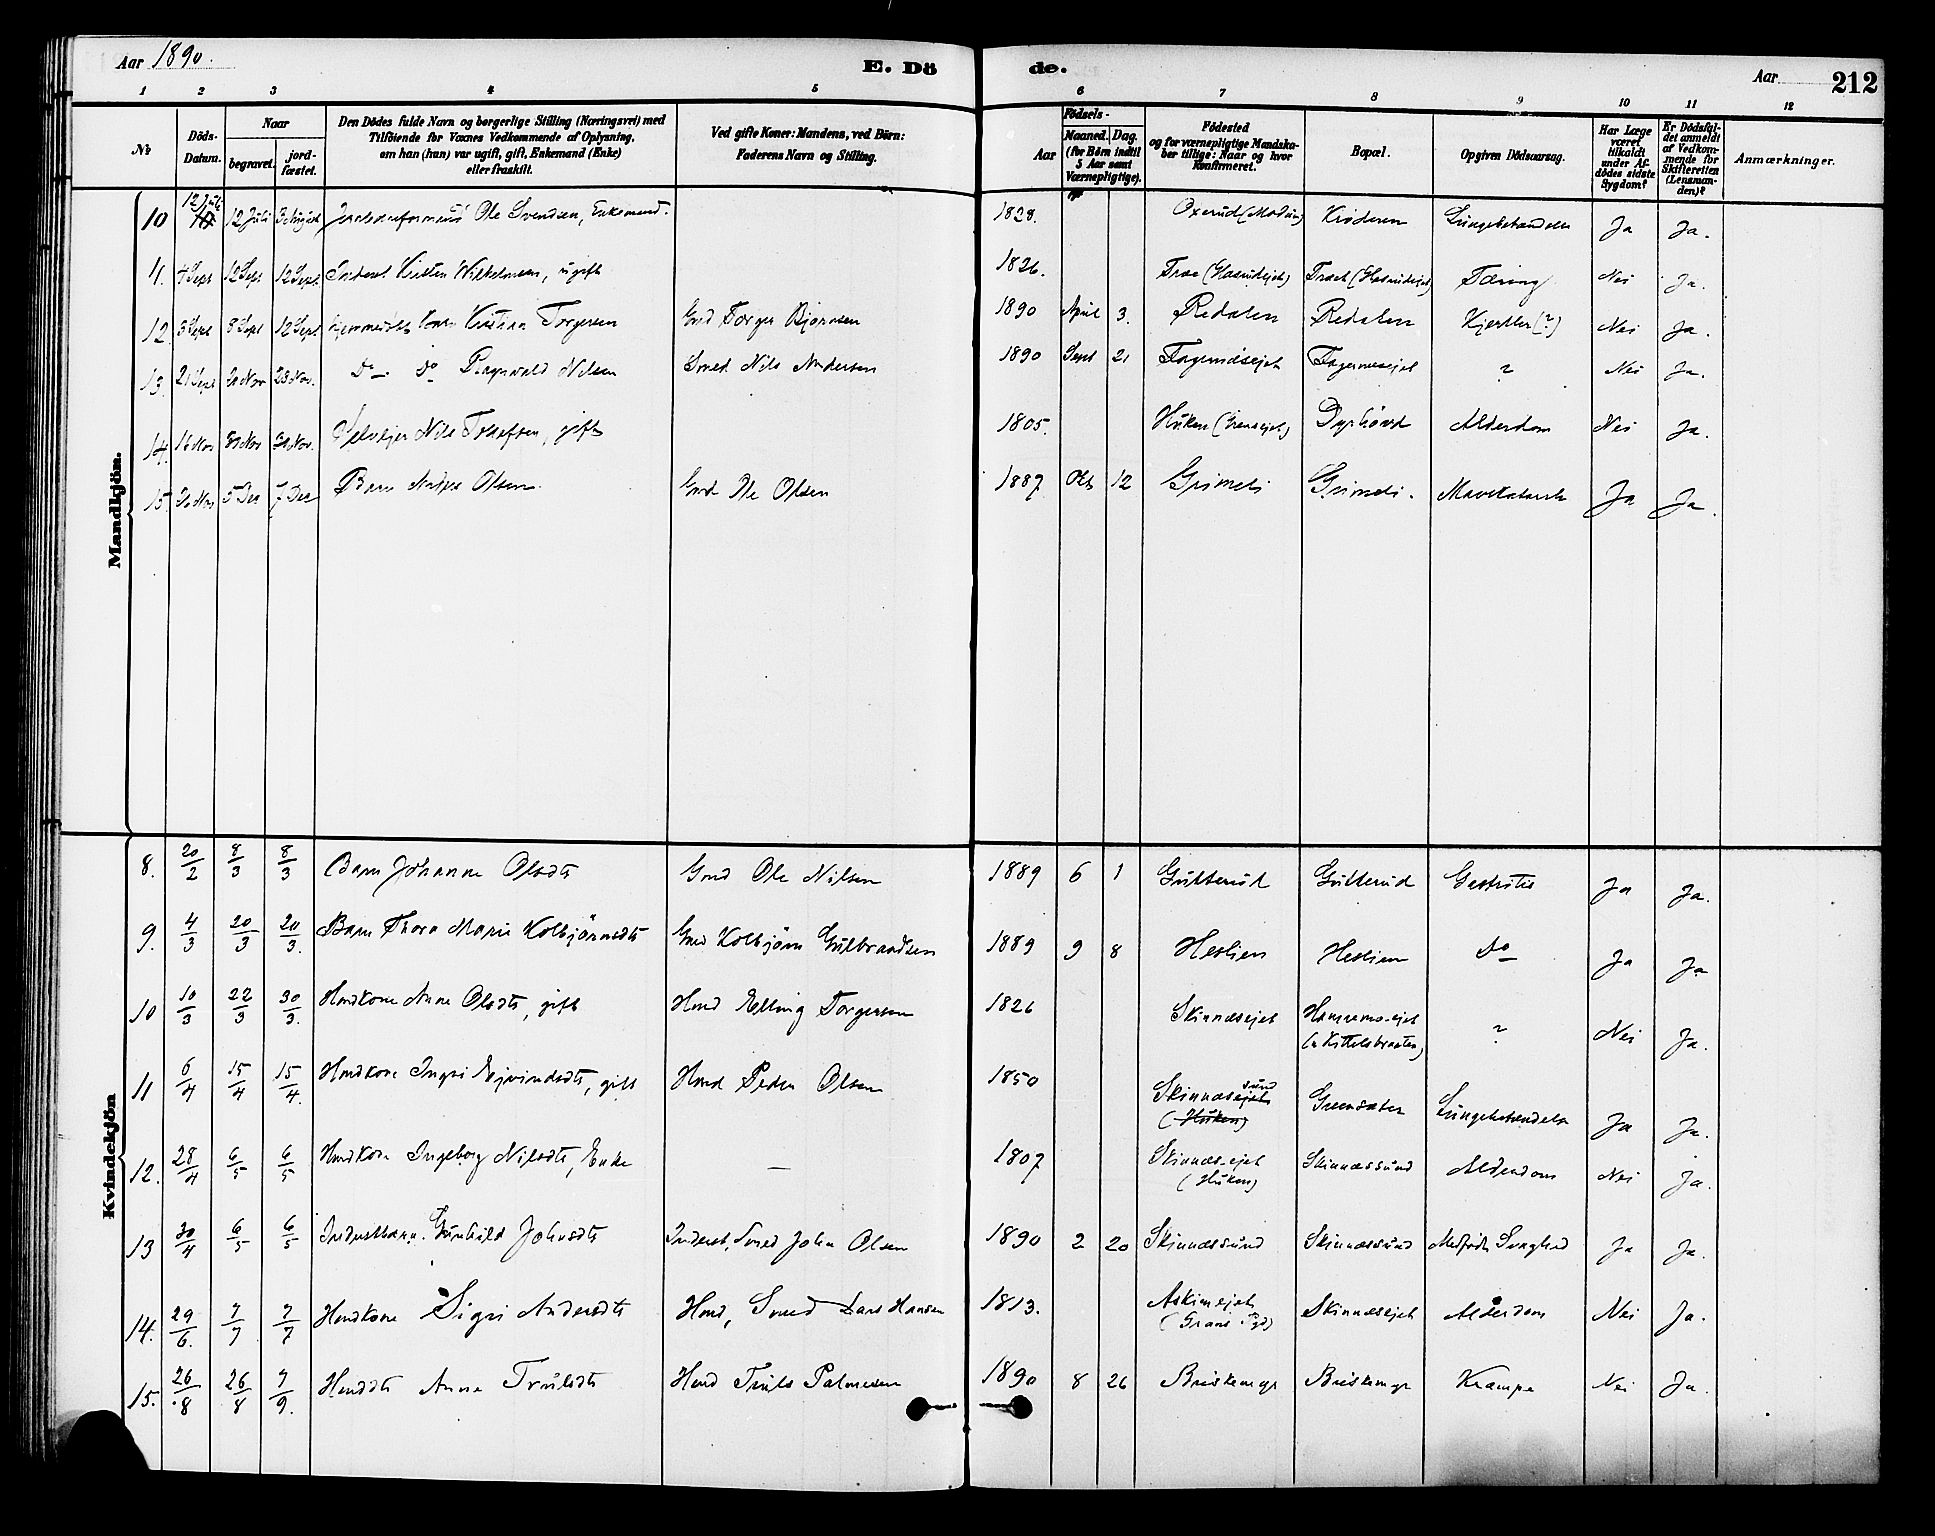 Aar 1890.
E. Dö
de.
Aar
212
1 2 3 4 5 6 7 8 9 10 11 12
No
Döds-Datum.
Naar
begravet. jord-fæstet.
Den Dödes fulde Navn og borgerlige Stilling (Næringsvei) med
Tilföiende for Voxnes Vedkommende af Oplysning,
om han (hun) var ugift, gift, Enkemand (Enke)
eller fraskilt.
Ved gifte Koner: Mandens, ved Börn:
Faderens Navn og Stilling.
Födsels-
Aar Maaned. Dag.
(for Börn indtil 5 Aar samt Værnepligtige).
Födested
og for værnepligtige Mandska-
ber tillige: Naar og hvor
konfirmeret.
Bopæl.
Opgiven Dödsaarsag.
Har Læge været tilkaldt under Afdödes sidste Sygdom?
Er Dödsfaldet anmeldt af Vedkommende for Skifteretten (Lensmanden)?
Anmærkninger.
Mandkjön.
10 12 Juli 12 Juli Ole Svendsen, Enkemand. 1828. Oxerud (Modum) Krøderen Lungebetændelse Ja Ja.
11. 4 Sept 12 Sept 12 Sept. Inderst Wilhelmsen, ugift 1826. Tæring Nei Ja.
12 3 Sept 8 Sept 12 Sept Kristian Torgersen Gmd Torger Bjørnsen 1890 April 3. Redalen Redalen Kjertler (?) Nei Ja.
13. 21 Sept 20 Nov 23 Nov. Do Do Ragnvald Nilsen Smed Nils Andersen 1890 Sept 21 ? Nei Ja.
14. 16 Nov Nils Tollefsen, gift 1805. Huken Alderdom Nei Ja.
15. 5 Dec 7 Dec Barn Olsen Gmd Ole Olsen 1887 Okt 12 Grimeli Grimeli. Mavekatarrh Ja Ja.
Kvindekjön
8. 20/2 8/3 8/3 Barn Johanne Olsdtr Gmd Ole Nilsen 1889 6 1 Gulterud Gulterud Gastritis Ja Ja.
9. 4/3 20/3 20/3. Barn Thora Marie Kolbjörnsdtr Gmd Kolbjörn Gulbrandsen 1889 9 8 Heslien Heslien Do Ja Ja
10 10/3 22/3 30/3. Hmdkone Anne Olsdtr, gift Hmd Elling Torgersen 1826 Skinnæsejet
(Kittelsbraaten) ? Nei Ja.
11 6/4 15/4 15/4. Hmdkone Ingri Ejvindsdtr, gift Hmd Peder Olsen 1850 Skinnæsejet sund
(Huken) Lungebetændelse Ja Ja.
12. 28/4 6/5 6/5 Hmdkone Ingeborg Nilsdtr, Enke — 1807 Skinnæsejet
(Huken) Skinnæssund Alderdom Nei Ja.
13 30/4 6/5 6/5 Inderstbarn Gunhild Johnsdtr Inderst, Smed John Olsen 1890 2 20 Skinnæssund Skinnæssund Medfødt Svaghed Ja Ja.
14. 29/6. 7/7 7/7 Hmdkone Sigri Andersdtr Hmd, Smed Lars Hansen 1813. Askimejet
(Grans Pgd) Skinnæsejet Alderdom Nei Ja.
15. 26/8 26/8 7/9. Hmddtr Anne Trulsdtr Hmd Truls Palmesen 1890 8 26 Briskemyr Briskemyr Krampe Nei Ja.